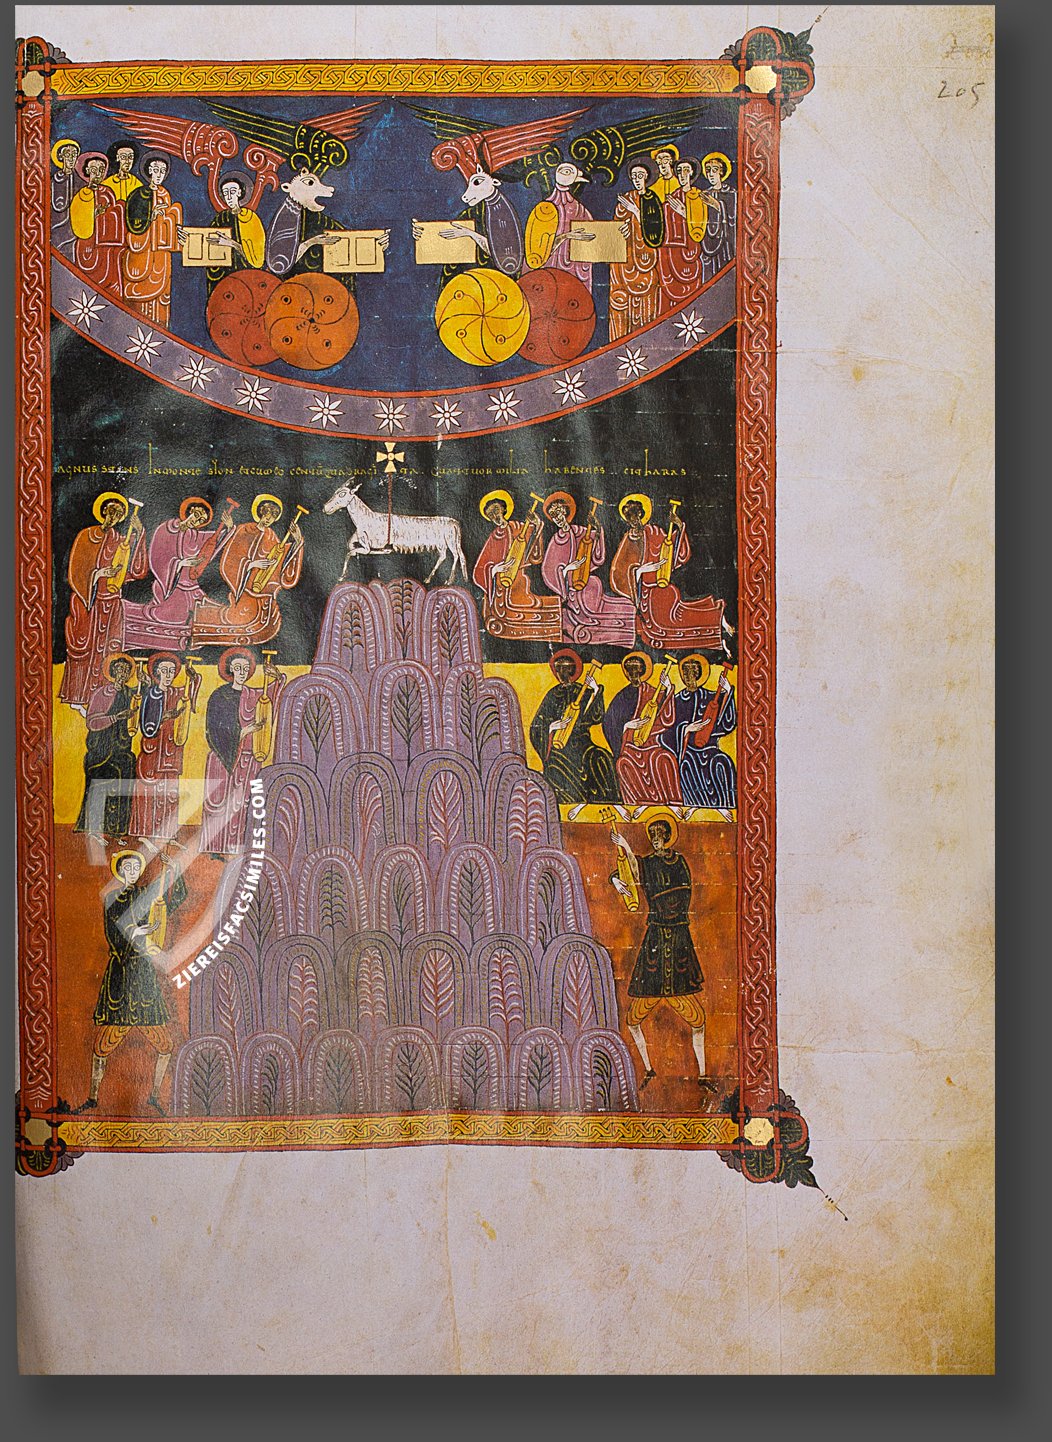 205
agnus stans In monte sion et cum eo centū quadraci ta. quattuor milia habentes citharas
ZIEREISFACSIMILES.COM